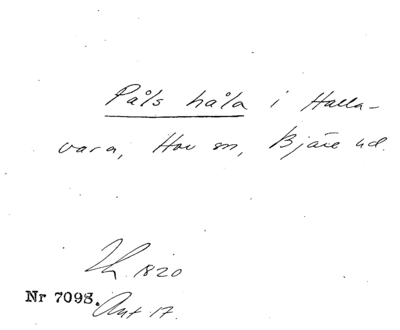 Påls håla i Halla-
vara, Hov sn, Bjäre hd.
Th. 1820
Nr 7098.
Ant 17.